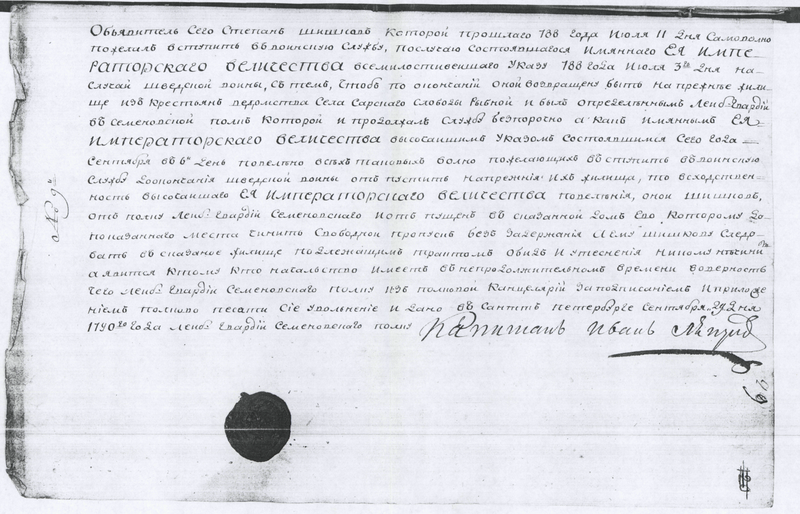 Объявитель Сего Степанъ Шишковъ Которой прошлаго 788 года Июля 11 дня Самоволно
пожелалъ вступить въ воинскую Службу, послучаю Состоявшагося Имяннаго ЕЯ ИМПЕ-
РАТОРСКАГО ВЕЛИЧЕСТВА всемилостивейшаго Указу 788 года Июля 3го дня на-
случай шведской воины, Стемъ, чтобъ по окончаний оной возвращену быть на прежнѣе жили-
ще изъ Крестьянъ ведомства Села Сарскаго Слободы Рыбной и былъ определеннымъ Лейбъ Гвардіи
въ Семеновской полкъ Которой и продолжалъ Службу безпорочно а какъ Имяннымъ ЕЯ-
ИМПЕРАТОРСКАГО ВЕЛИЧЕСТВА высочайшимъ Указомъ Состоявшимся Сего года-
Сентября въ день повелѣно всѣхъ таковыхъ волно пожелающихъ въступить въ воинскую
Службу доокончания шведской воины отпустить напрежния Ихъ жилища, то всходствен-
ность высочайшаго ЕЯ ИМПЕРАТОРСКАГО ВЕЛИЧЕСТВА повеления, оной Шишковъ,
отъ полку Лейбъ Гвардіи Семеновскаго И отпущенъ въ сказанной домъ Ево, Которому до-
показаннаго места чинить Свободной пропускъ безъ задержания Ему Шишкову Следо-
вать въ сказаное жилище подлежащимъ трактомъ Обидъ И утеснения Никому нечинить
а явится Ктому Кто начальство Имеетъ въ непродолжительномъ времени вверность
чего Лейбъ Гвардіи Семеновскаго полку изъ полковой Канцелярій Заподписаниемъ И приложе-
ніемъ полковой печати Сіе Уволнение И дано въ Санктъ Петербурге Сентября 29 дня
1790го года Лейбъ Гвардіи Семеновскаго полку Капитанъ Иванъ